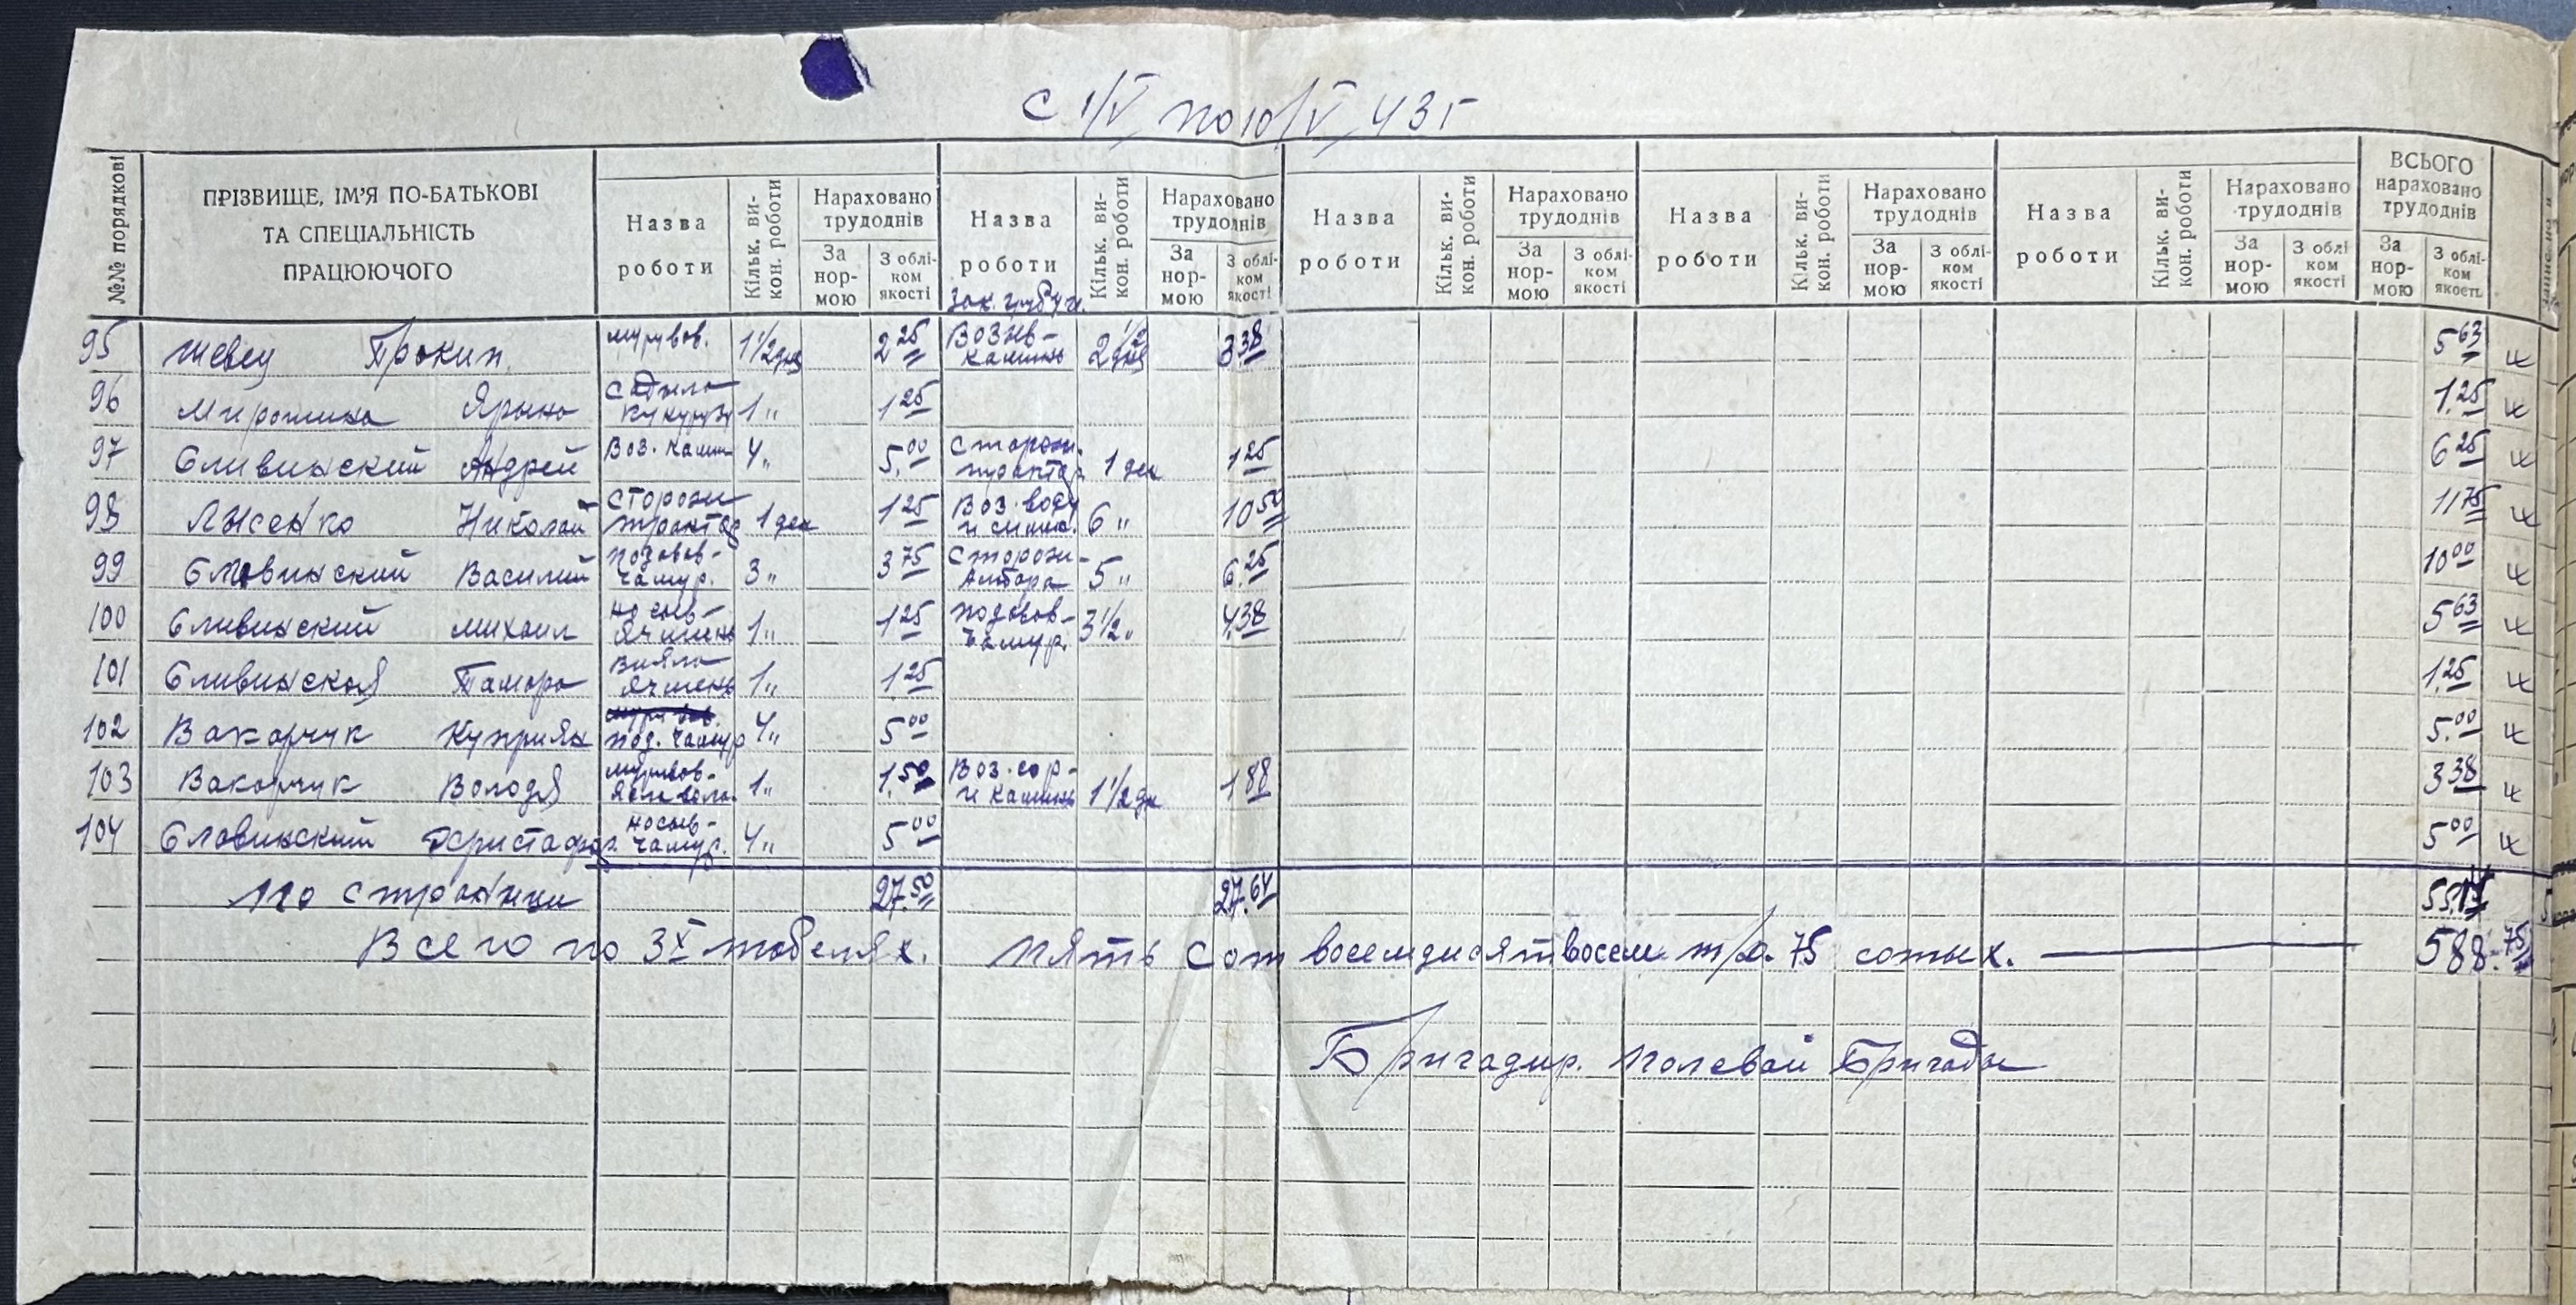 С 1/V по 10/V 43 г
№№ порядкові
ПРІЗВИЩЕ, ІМ'Я ПО-БАТЬКОВІ
ТА СПЕЦІАЛЬНІСТЬ
ПРАЦЮЮЧОГО
Назва роботи
Кільк. ви-
кон. роботи
Нараховано
трудоднів
За нор-
мою
З облі-
ком
якості
Назва роботи
Кільк. ви-
кон. роботи
Нараховано
трудоднів
За нор-
мою
З облі-
ком
якості
Назва роботи
Кільк. ви-
кон. роботи
Нараховано
трудоднів
За нор-
мою
З облі-
ком
якості
Назва роботи
Кільк. ви-
кон. роботи
Нараховано
трудоднів
За нор-
мою
З облі-
ком
якості
Назва роботи
Кільк. ви-
кон. роботи
Нараховано
трудоднів
За нор-
мою
З облі
ком
якості
ВСЬОГО
нараховано
трудоднів
За
нор-
мою
З облі-
ком
якость
95 Шевец Прокип. 1 1/2 дня 2 25 камень 2 1/2 дня 3 38 5 63
96 Ярына Садила кукурузу 1 " 1 25 1.25
97 Сливинский Андрей Воз. камен 4 " 5.00 Сторож. трактор 1 ден 1 25 6 25
98 Лысенко Николай Сторожи трактор 1 ден 1 25 Воз. воду 6 " 10 50 11 75
99 Сливинский Василий подовав- чамур. 3 " 3 75 Сторожи- Амбара 5 " 6.25 10 00
100 Сливинский Михаил носыв- ячмень 1 " 1 25 подовав- чамур. 3 1/2 " 4.38 5 63
101 Сливинская Тамара Вияла ячмень 1 " 1.25 1.25
102 Вакарчук Куприян под. чамур 4 " 5 00 5.00
103 Вакарчук Володя 1 " 1.50 Воз. и камень 1 1/2 дн 1 88 3 38
104 Словинский Хфистафор носыв- чамур. 4 " 5 00 5 00
По странице 27.50 27.64 55.14
Всего по 3х табелях. Пять сот восемдисят восем т/д. 75 сотых. — 588.75
Бригадир. Полевой Бригады